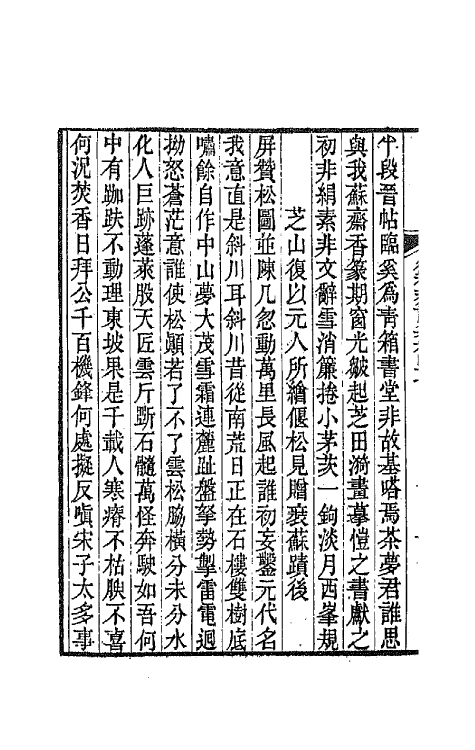 半段晉帖臨奚爲靑箱書堂非故基嗒焉茶夢君誰思
與我蘇齋香篆期窗光皴起芝田漪畫摹愷之書獻之
初非絹素非文辭雪消簾捲小茅茨一鉤淡月西峯規
芝山復以元人所繪偃松見贈裝蘇蹟後
屏贊松圖並陳几忽動萬里長風起誰初妄鑿元代名
我意直是斜川耳斜川昔從南荒日正在石樓雙樹底
嘯餘自作中山夢大茂雪霜連麓趾盤拏勢掣雷電迴
拗怒蒼茫意誰使松顚若了不了雲松脇橫分未分水
化人巨跡蓬萊股天匠雲斤斲石髓萬怪奔駛如吾何
中有跏趺不動理東坡果是千載人寒瘠不枯腴不喜
何況焚香日拜公千百機鋒何處擬反嗔宋子太多事